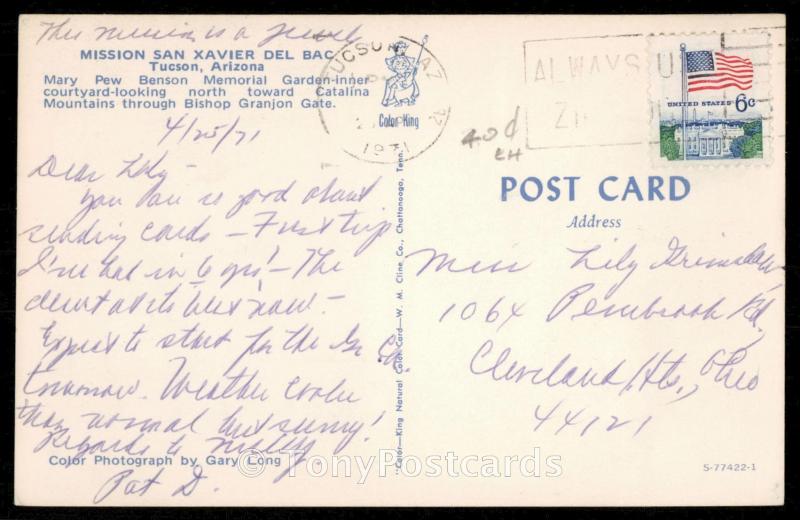 This mission is a jewel
MISSION SAN XAVIER DEL BAC
Tucson, Arizona
Mary Pew Benson Memorial Garden-inner
courtyard-looking north toward Catalina
Mountains through Bishop Granjon Gate.
4/25/71
Dear Lily -
you are so good about
sending cards - First trip
I've had in 6 yrs! - The
desert at its best now -
Expect to start for the Gr. Ca.
tomorrow. Weather cooler
than normal but sunny!
Regards to
Color Photograph by Gary Long
Pat D.
Color-King
"Color-King Natural Color Card—W. M. Cline Co., Chattanooga, Tenn.
TUCSON, AZ
1971
ALWAYS U
ZI
40¢
UNITED STATES 6c
POST CARD
Address
Miss Lily
1064 Pembrook Rd.,
Cleveland Hts., Ohio
44121
S-77422-1
© TonyPostcards